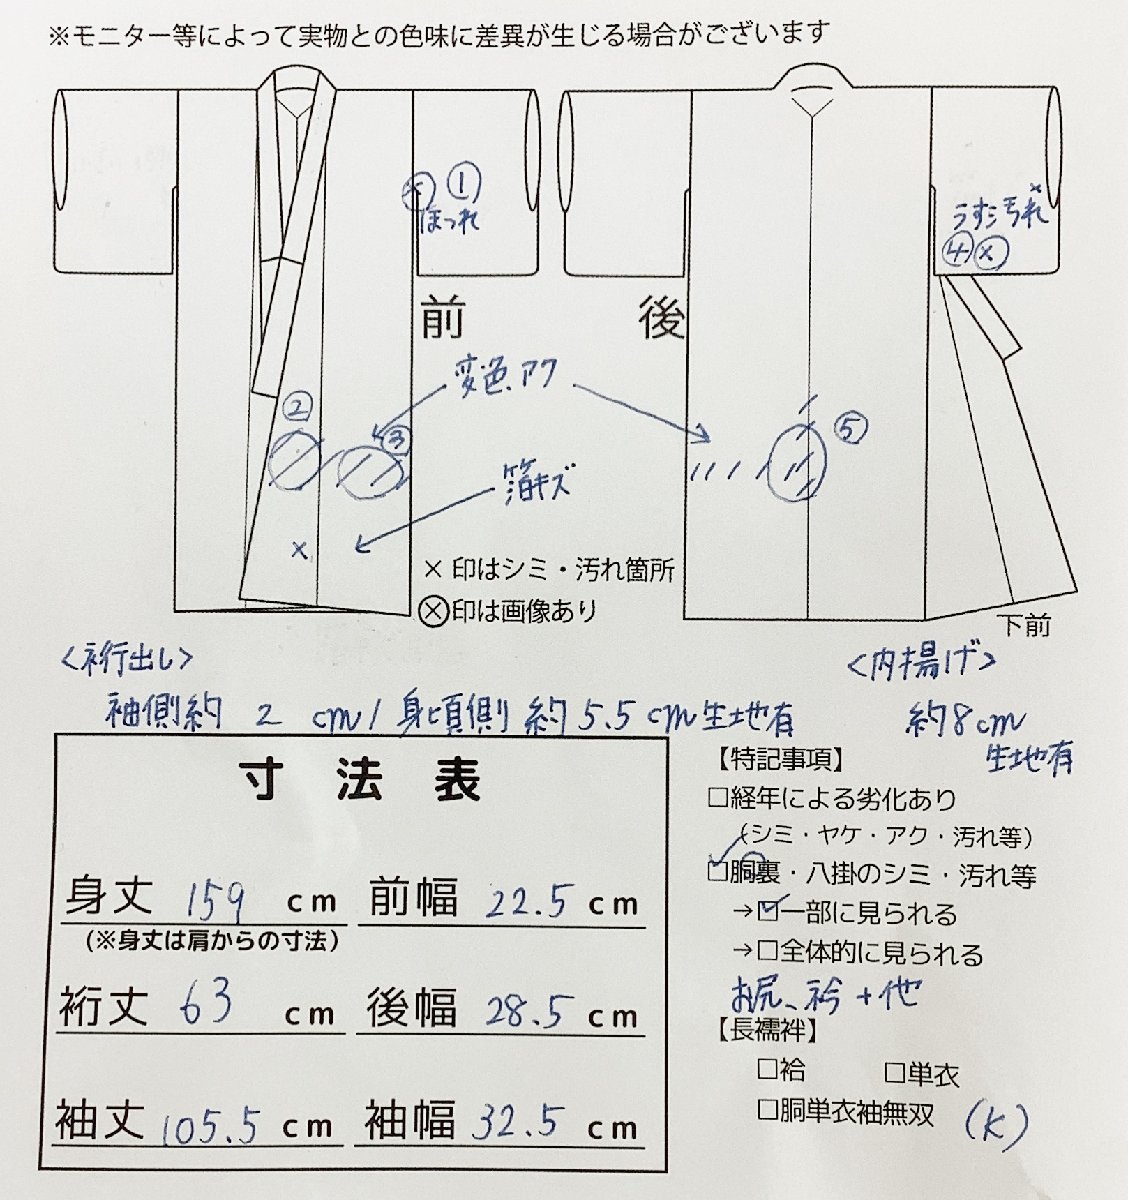 ※モニター等によって実物との色味に差異が生じる場合がございます
× ①
ほつれ
×
うすシ汚れ
④ ×
前
後
変色、アク
②
③
⑤
箔キズ
×
×印はシミ・汚れ箇所
Ⓧ印は画像あり
下前
<裄出し>
<内揚げ>
袖側約 2 cm/身頃側約5.5cm生地有
約8cm
生地有
寸法表
身丈 159 cm
前幅 22.5 cm
(※身丈は肩からの寸法)
裄丈 63 cm
後幅 28.5 cm
袖丈 105.5 cm
袖幅 32.5 cm
【特記事項】
□経年による劣化あり
(シミ・ヤケ・アク・汚れ等)
☑胴裏・八掛のシミ・汚れ等
→☑一部に見られる
→□全体的に見られる
お尻、衿+他
【長襦袢】
□袷 □単衣
□胴単衣袖無双 (K)